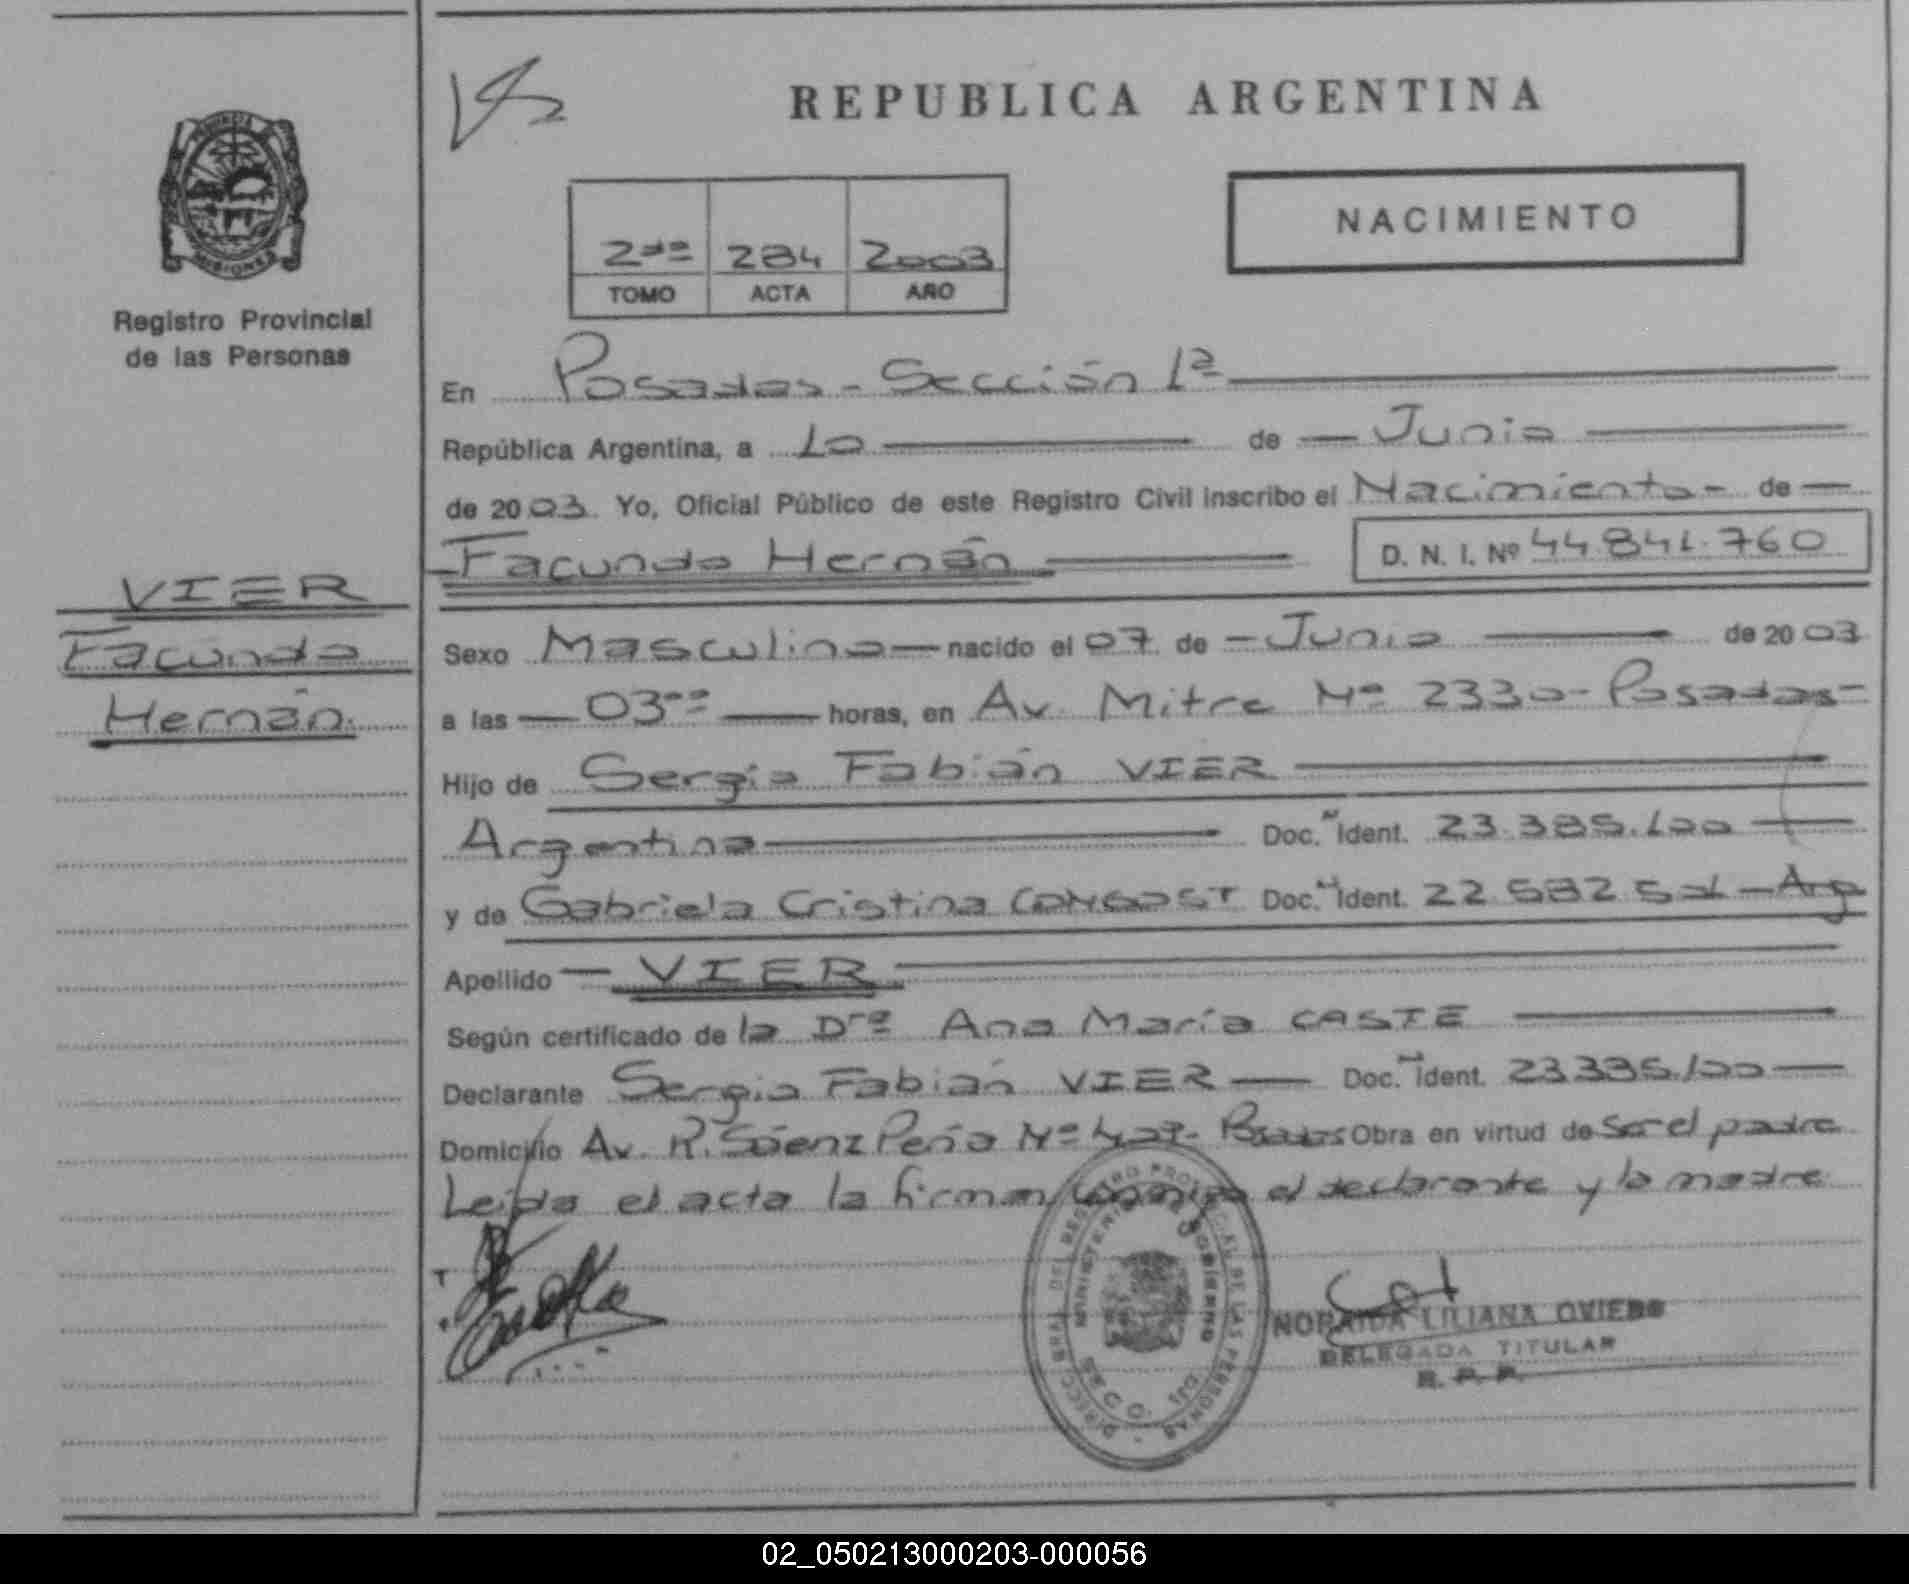 REPUBLICA ARGENTINA
NACIMIENTO
2do 284 2003
TOMO ACTA AÑO
PROVINCIA DE MISIONES
Registro Provincial
de las Personas
VIER
Facundo
Hernán.
En Posadas - Sección 1ª
República Argentina, a 10 de Junio
de 2003. Yo, Oficial Público de este Registro Civil inscribo el Nacimiento - de
Facundo Hernán D. N. I. Nº 44.841.760
Sexo Masculino nacido el 07 de Junio de 2003
a las 03ºº horas, en Av. Mitre Nº 2330 - Posadas -
Hijo de Sergio Fabián VIER
Argentina Doc. N Ident. 23.385.100
y de Gabriela Cristina Doc. N Ident. 22.582.501 - Arg
Apellido VIER
Según certificado de la Drª Ana María CASTE
Declarante Sergio Fabián VIER Doc. Ident. 23.385.100
Domicilio Av. R. Sáenz Peña Nº Posadas Obra en virtud de ser el padre
Leída el acta la firman conmigo el declarante y la madre
NORAIDA LILIANA OVIEDO
DELEGADA TITULAR
R. P. P.
02_050213000203-000056